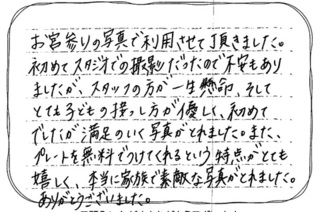 お宮参りの写真で利用させて頂きました。
初めてスタジオでの撮影だったので不安もあり
ましたが、スタッフの方が一生懸命、そして
とても子どもの接し方が優しく、初めて
でしたが満足のいく写真がとれました。また、
プレートを無料でつけてくれるという特点がとても
嬉しく、本当に家族で素敵な写真がとれました。
ありがとうございました。